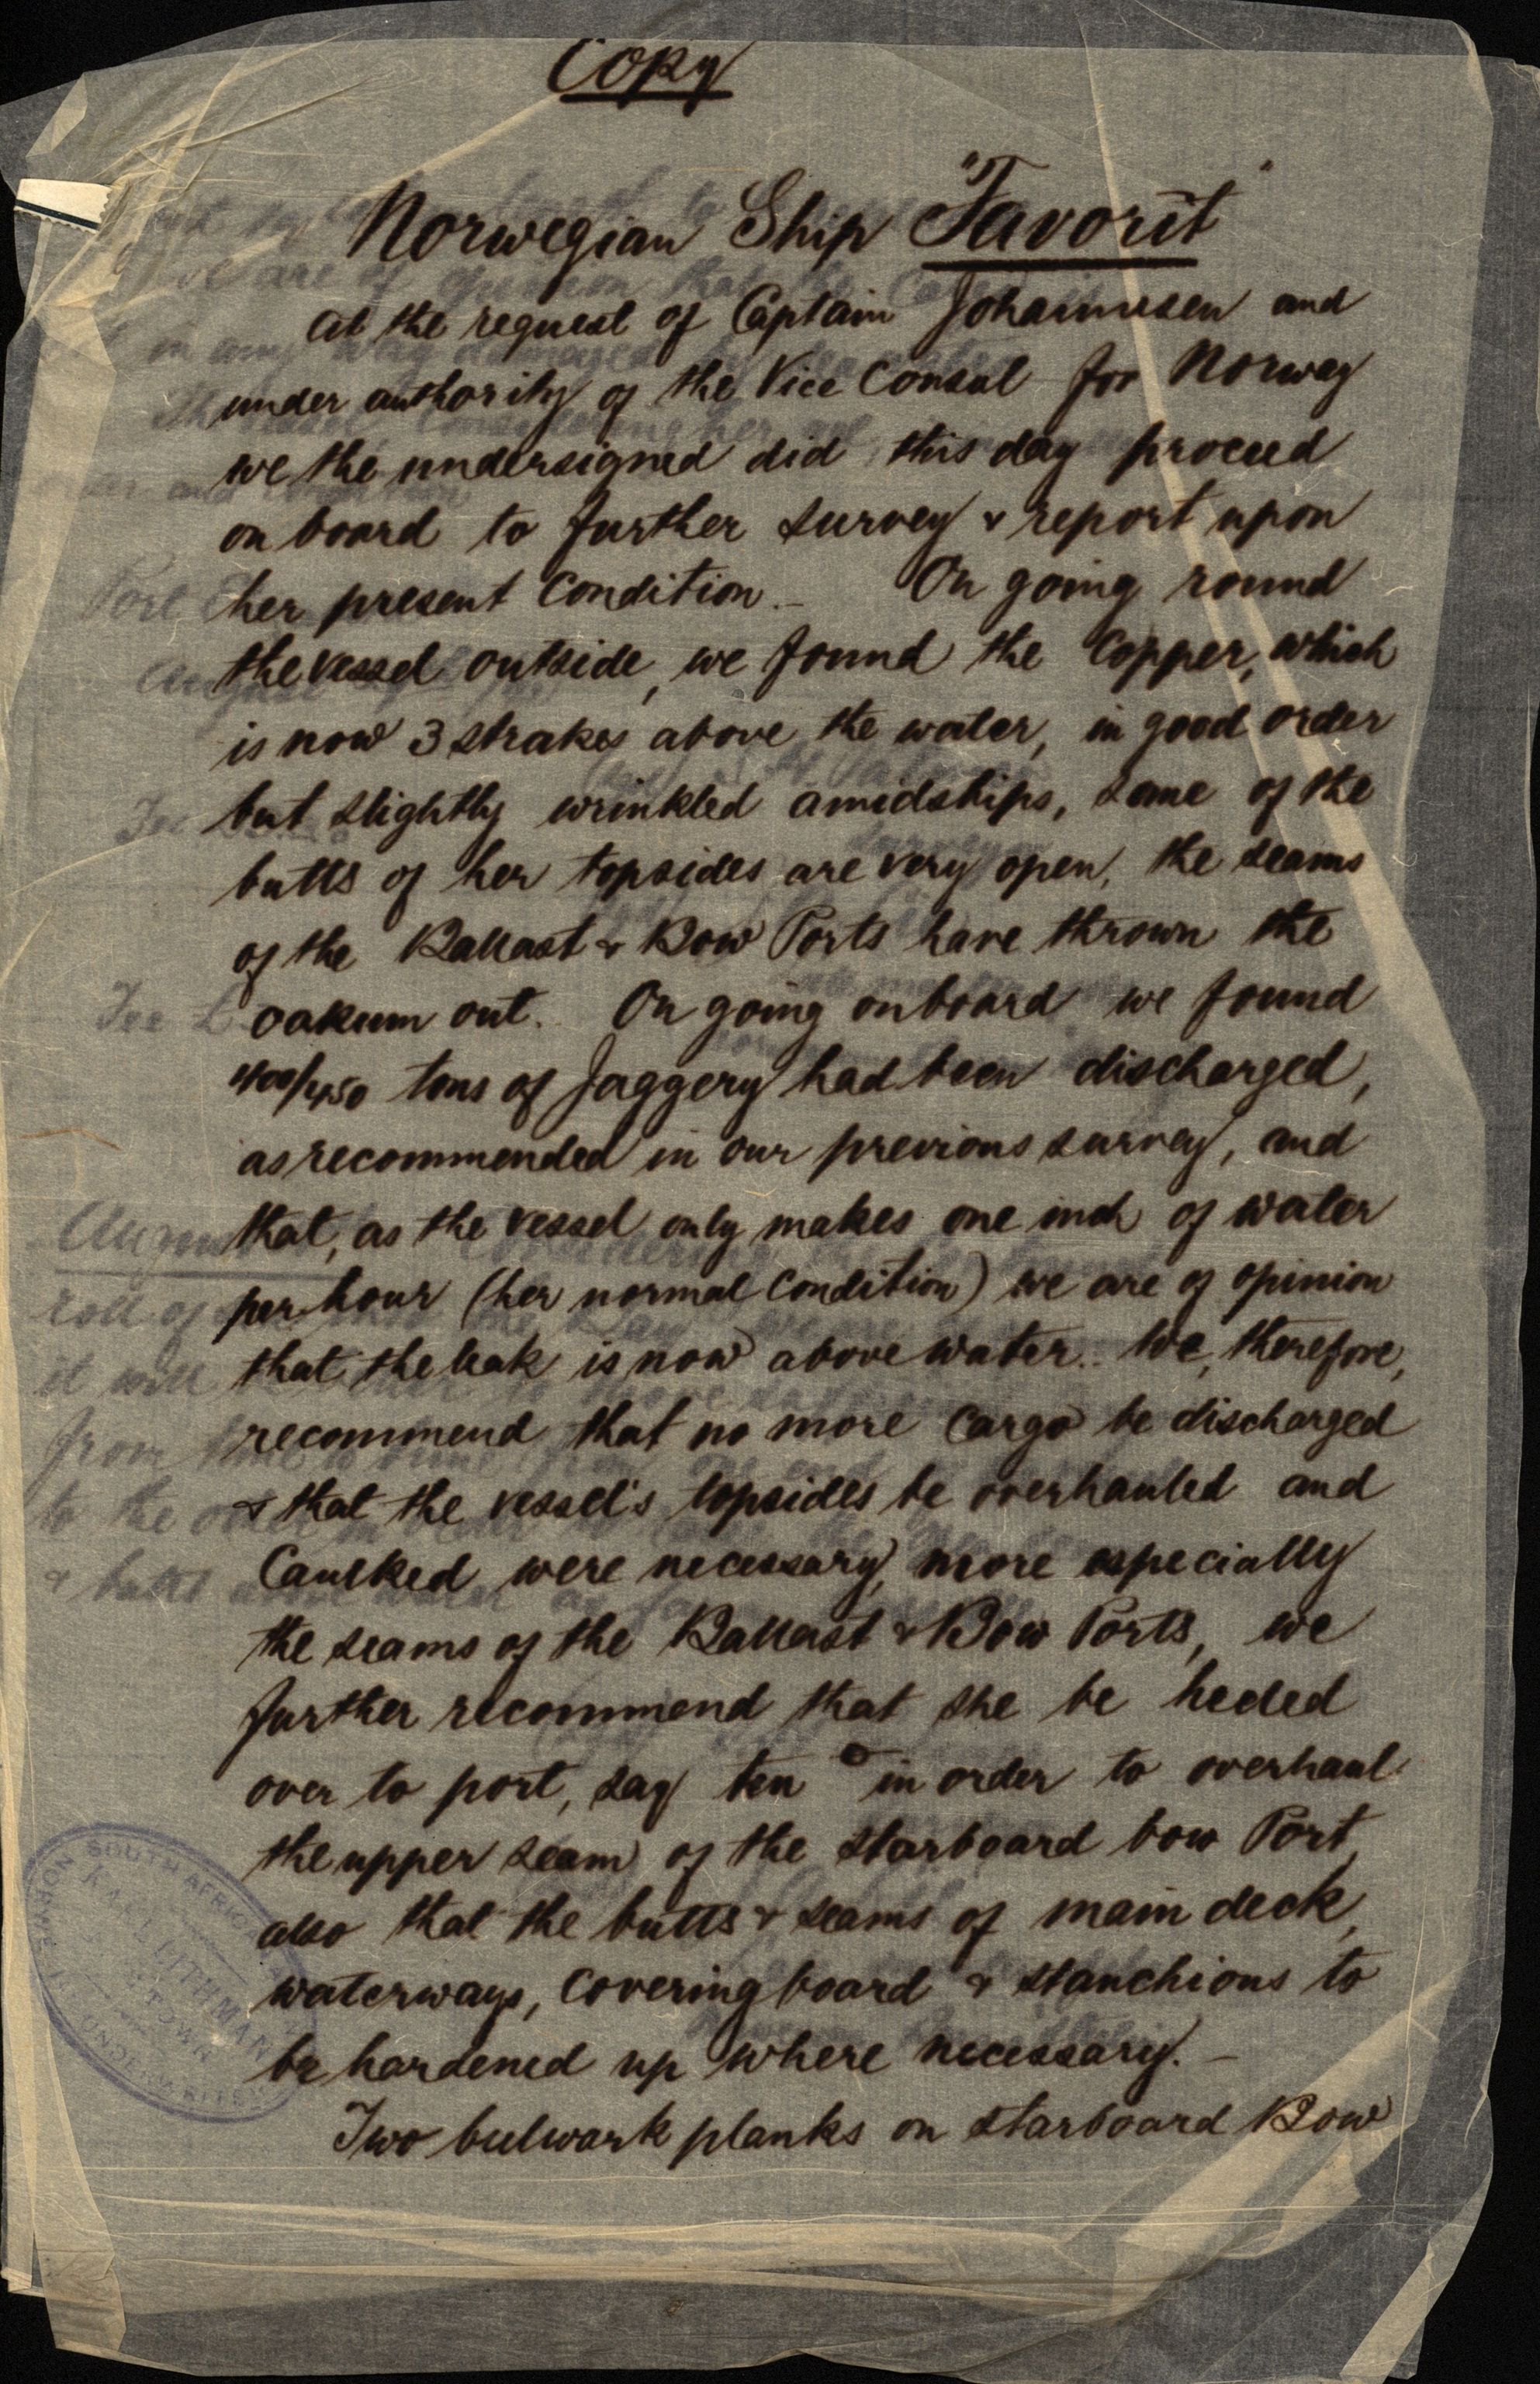 Copy
Norwegian Ship "Favorit"
At the request of Captain Johannesen and
under authority of the Vice Consul for Norway
we the undersigned did this day proceed
on board to further survey & report upon
her present Condition. — On going round
the vessel outside, we found the Copper, which
is now 3 strakes above the water, in good order
but slightly wrinkled amidships, some of the
butts of her topsides are very open, the seams
of the Ballast & Bow Ports have thrown the
oakum out. On going onboard we found
400/450 tons of Jaggery had been discharged,
as recommended in our previous survey, and
that, as the vessel only makes one inch of water
per hour (her normal Condition) we are of opinion
that the leak is now above water. We, therefore,
recommend that no more Cargo be discharged
& that the vessel's topsides be overhauled and
Caulked were necessary, more especially
the seams of the Ballast & Bow Ports, we
further recommend that she be heeled
over to port, say ten ° in order to overhaul
the upper seam of the starboard bow Port,
also that the butts & seams of main deck,
waterways, Covering board & stanchions to
be hardened up where necessary. —
Two bulwark planks on starboard Bow
SOUTH AFRICA
KARL LITHMAN
UNDERWRITERS